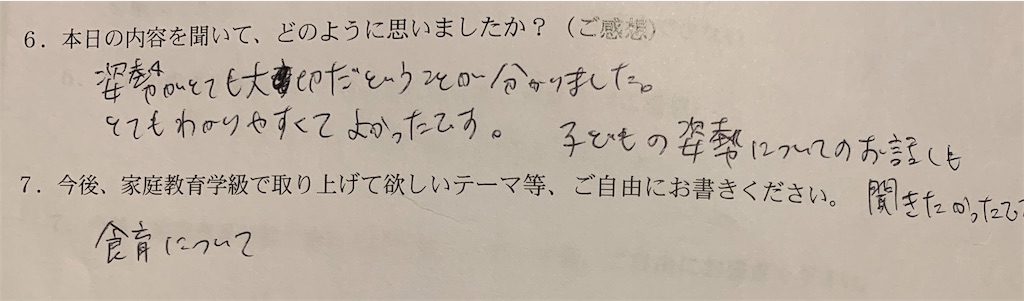 6．本日の内容を聞いて、どのように思いましたか？（ご感想）
姿勢がとても大切だということが分かりました。
とてもわかりやすくてよかったです。
子どもの姿勢についてのお話しも
聞きたかったです
7．今後、家庭教育学級で取り上げて欲しいテーマ等、ご自由にお書きください。
食育について